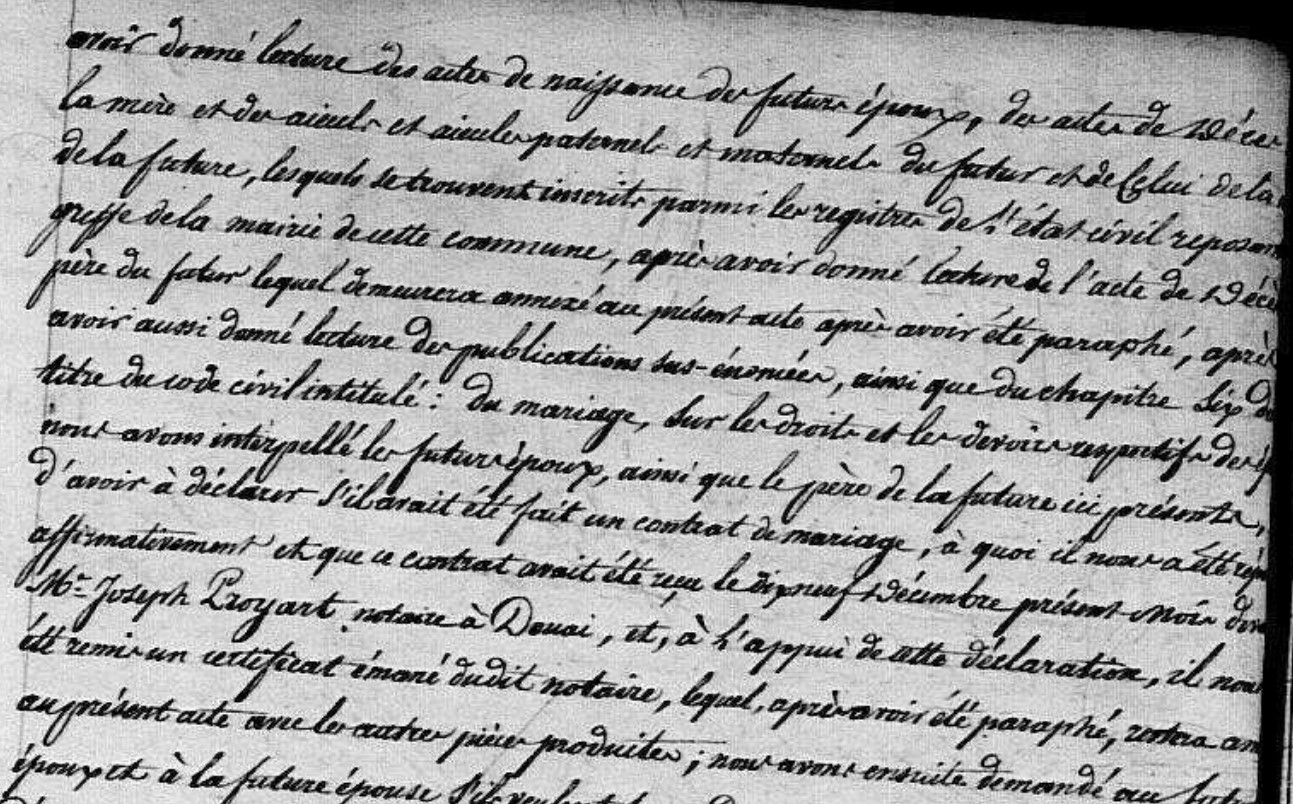 avoir donné lecture des actes de naissance des futurs époux, des actes de décès
la mère et des aieuls et aieules paternels et maternels du futur et de Celui de la
de la future, lesquels se trouvent inscrits parmi les registres de l'état civil reposant
greffe de la mairie de cette commune, après avoir donné lecture de l'acte de décès
père du futur lequel demeurera annexé au présent acte après avoir été paraphé, après
avoir aussi donné lecture des publications sus-énomées, ainsi que du chapitre Six du
titre du code civil intitulé : du mariage, Sur les droits et les devoirs respectifs des ép
nous avons interpellé les futurs époux, ainsi que le père de la future ici présents,
d'avoir à déclarer s'il avait été fait un contrat de mariage, à quoi il nous a été rép
affirmativement et que ce contrat avait été reçu le dix neuf décembre présent mois
Mr. Joseph Proyart notaire à Douai, et, à l'appui de cette déclaration, il nous
été remis un certificat émané dudit notaire, lequel, après avoir été paraphé, restera an
au présent acte avec les autres pièces produites ; nous avons ensuite demandé au futur
époux et à la future épouse s'ils veulent